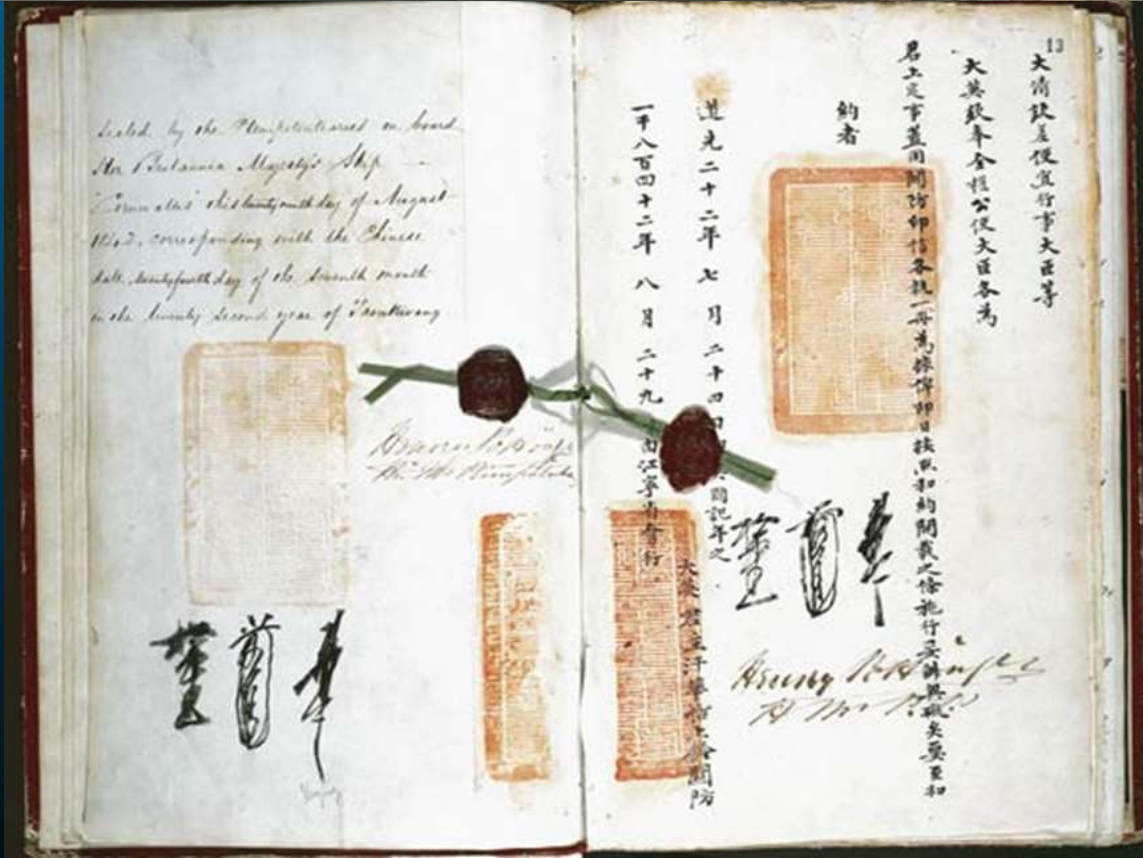 Sealed by the Plenipotentiaries on board
Her Britannic Majesty's Ship
Cornwallis this twenty ninth day of August
1842. corresponding with the Chinese
date, twenty fourth day of the seventh month
in the twenty second year of Taoukwang.
Henry Pottinger
13
大清欽差便宜行事大臣等
大英欽奉全權公使大臣各為
君上定事蓋用關防印信各執一冊為據俾即日按照和約開載之條施行妥辦無礙矣要至和
約者
道光二十二年七月二十四日國記年之
一千八百四十二年八月二十九由江寧省會行
大英君主汗華船上鈐關防
Henry Pottinger